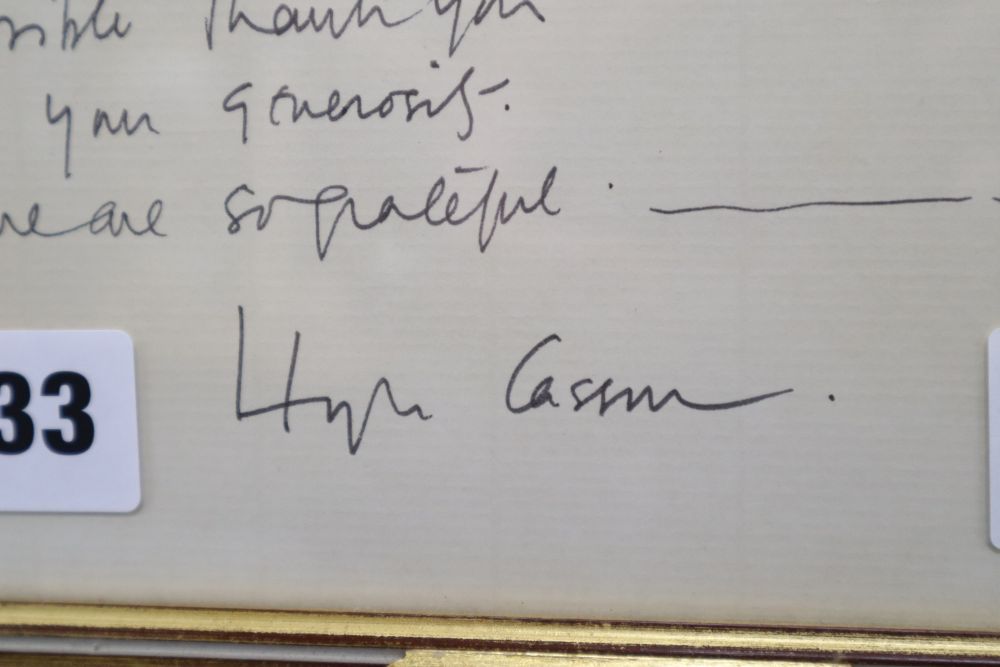 Thank you
your generosity.
we are so grateful. —
Hugh Casson.
33